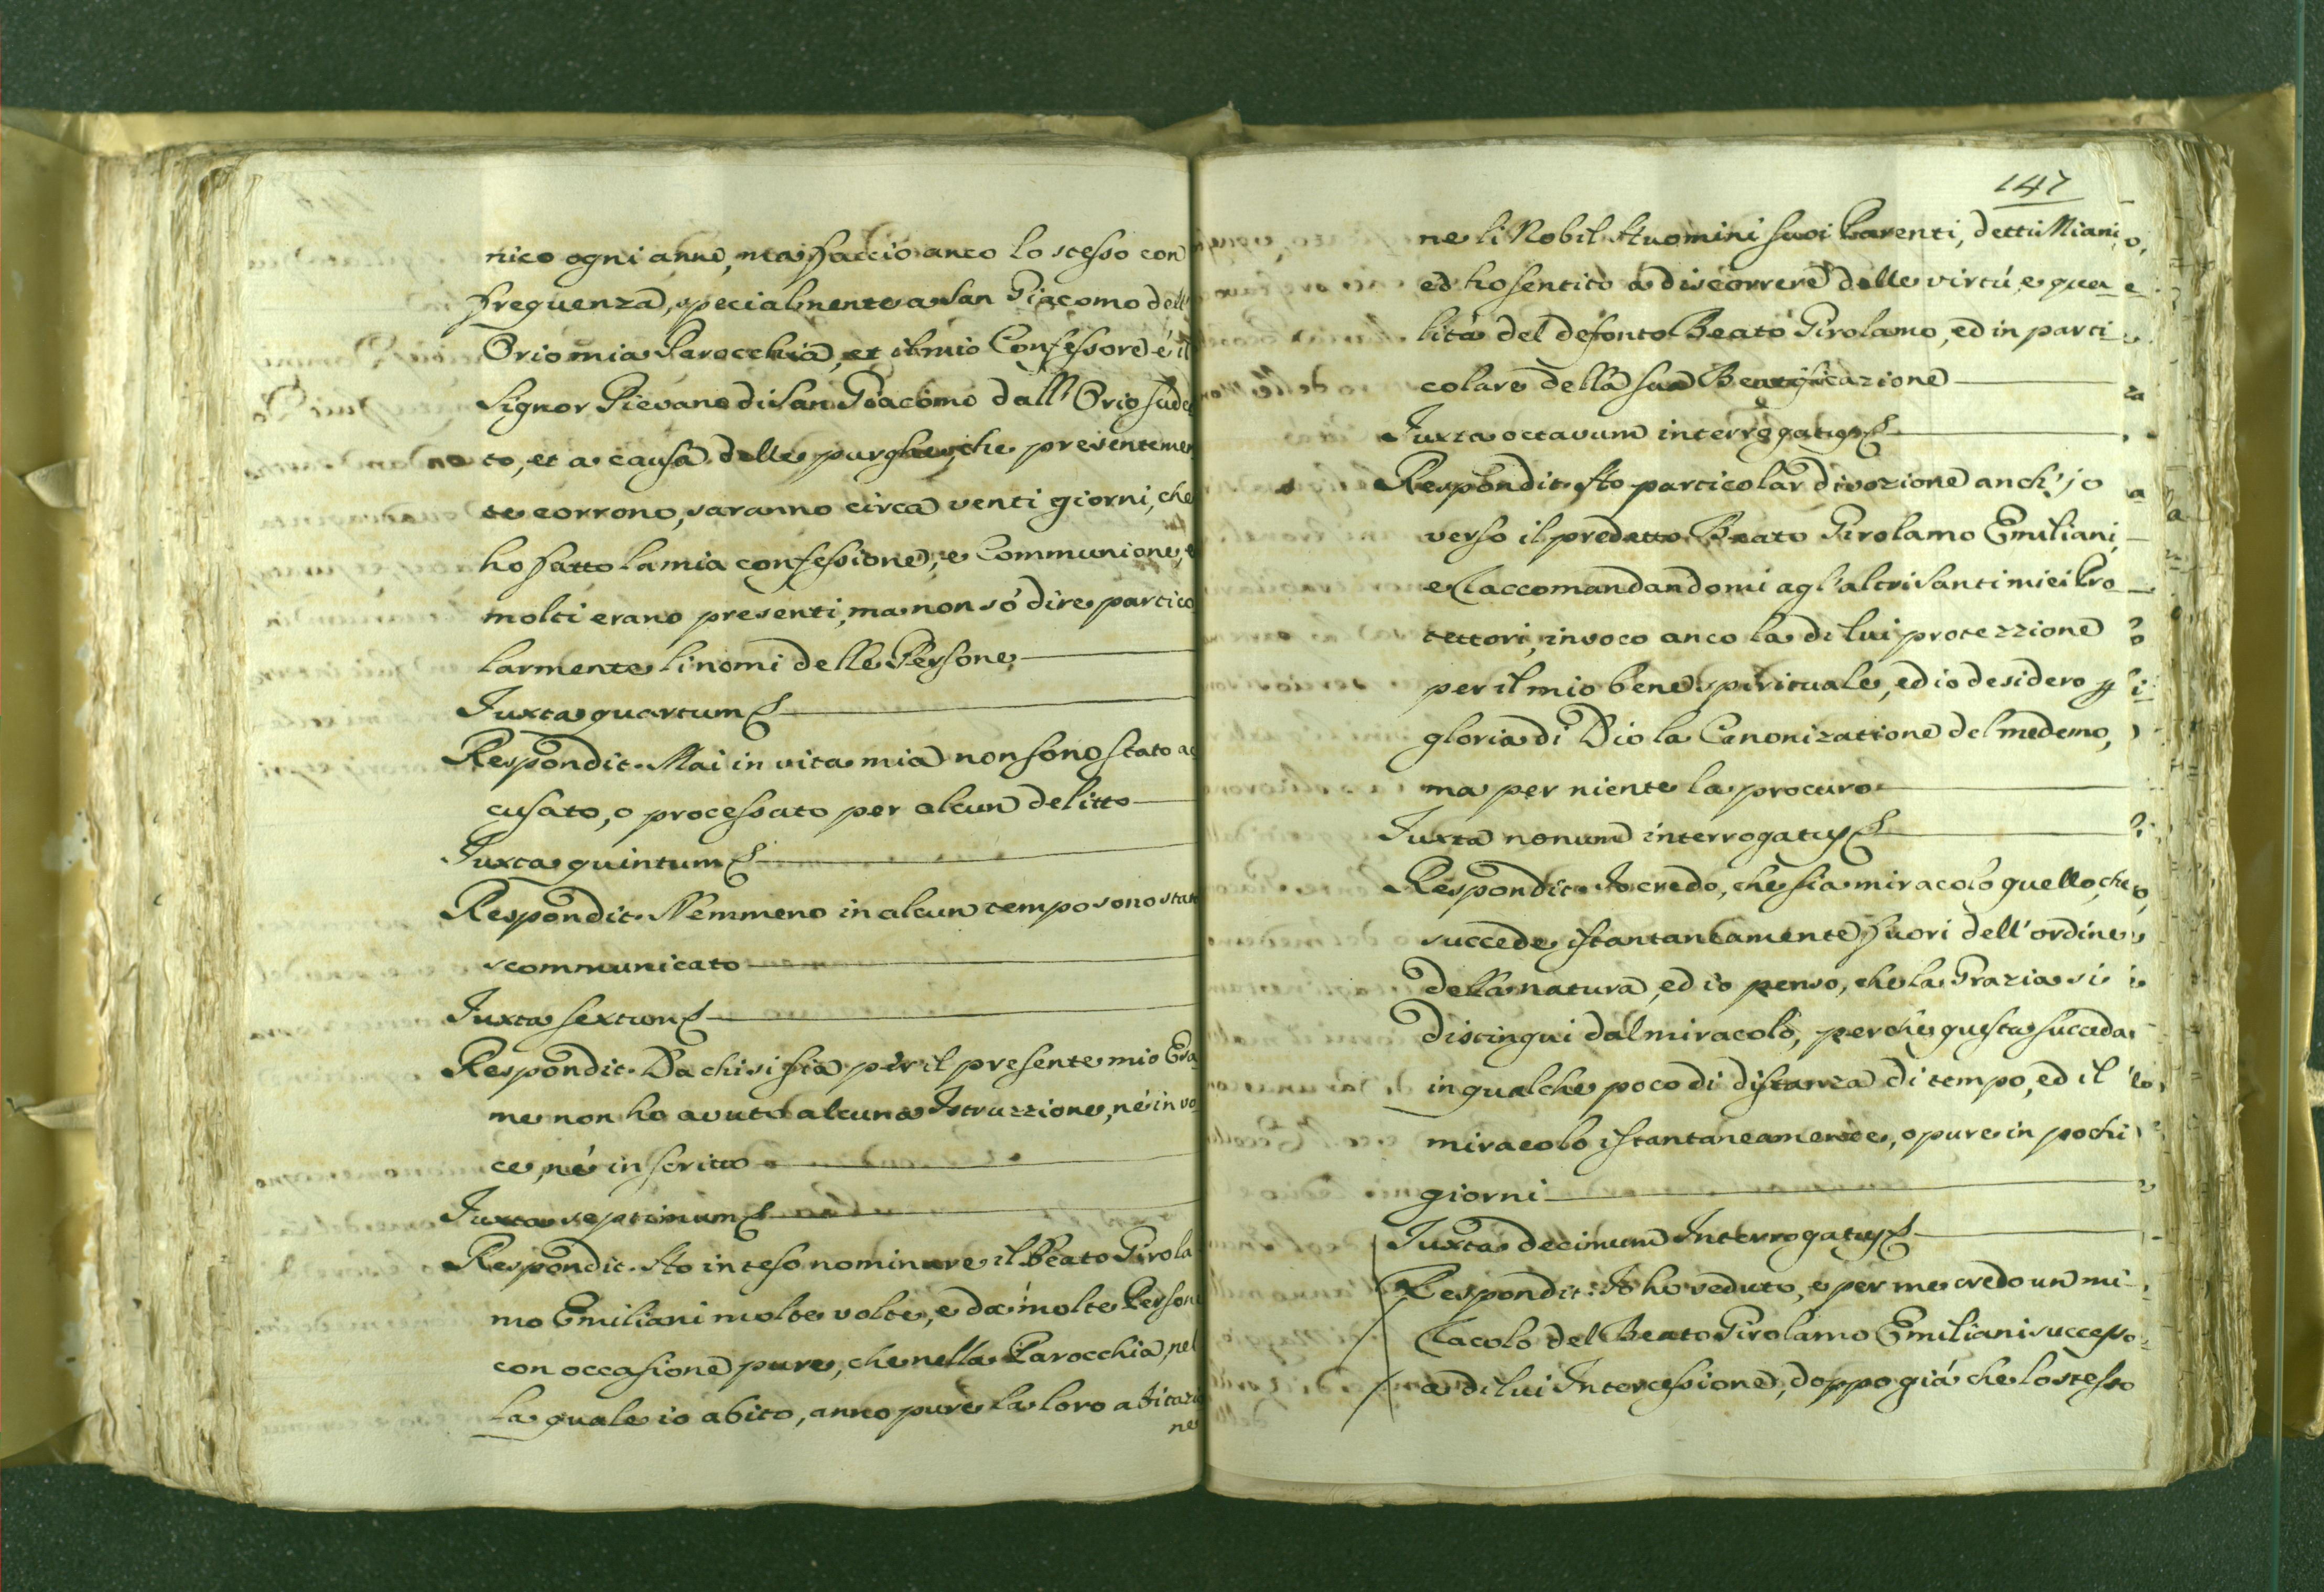 nico ogni anno, ma faccio anco lo stesso con
frequenza, specialmente a San Giacomo dell'
Orio mia Parocchia, et il mio Confessore é il
Signor Pievano di San Giacomo dall'Orio sudet
to, et a causa delle purghe, che presentemen
te corrono, saranno circa venti giorni, che
ho fatto la mia confessione, e Communione, e
molti erano presenti, ma non só dire partico
larmente li nomi delle Persone
Juxta quartum
Respondit. Mai in vita mia non sono stato ac
cusato, o processato per alcun delitto
Juxta quintum
Respondit. Nemmeno in alcun tempo sono stato
scommunicato
Juxta sextum
Respondit. Da chi si sia per il presente mio Esa
me non ho avuto alcuna Istruzzione, né in vo
ce, né in scritto
Juxta septimum
Respondit. Ho inteso nominare il Beato Girola
mo Emiliani molte volte, e da molte Persone
con occasione pure, che nella Parocchia, nel
la quale io abito, anno pure la loro abitazio
ne
147
ne li Nobil Huomini suoi Parenti, detti Miani
ed ho sentito a discorrere delle virtú, e qua
lita del defonto Beato Girolamo, ed in parti
colare della sua Beatificazione
Juxta octavum interrogatum
Respondit. Ho particolar divozione anch'jo
verso il predetto Beato Girolamo Emiliani,
e raccomandandomi agl'altri Santi miei Pro
tettori, invoco anco la di lui protezzione
per il mio bene spirituale, ed io desidero p
gloria di Dio la Canonizatione del medemo,
ma per niente la procuro
Juxta nonum interrogatum
Respondit. Io credo, che sia miracolo quello, che
succede istantaneamente fuori dell'ordine
della natura, ed io penso, che la Grazia si
distingui dal miracolo, perche questa succeda
in qualche poco di distanza di tempo, ed il
miracolo istantaneamente, o pure in pochi
giorni
Juxta decimum Interrogatum
Respondit. Io ho veduto, e per me credo un mi
racolo del Beato Girolamo Emiliani successo
a di lui Intercessione, doppo giá che lo stesso